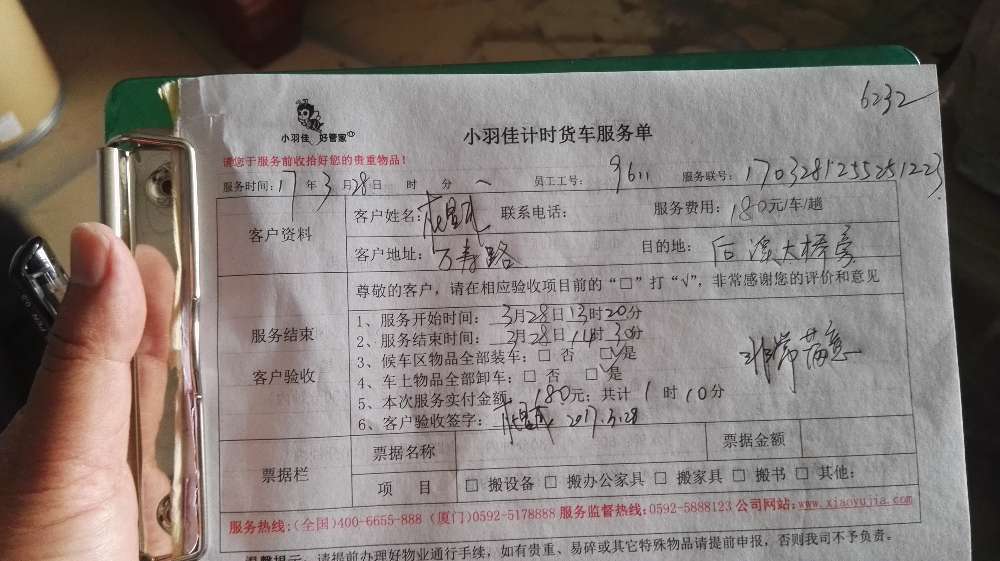 6232
小羽佳 好管家
小羽佳计时货车服务单
请您于服务前收拾好您的贵重物品！
服务时间：17年3月28日 时 分 — 员工工号：9611 服务联号：1703281255251223
客户资料
客户姓名： 联系电话： 服务费用：180元/车/趟
客户地址：万寿路 目的地：后溪大桥旁
尊敬的客户，请在相应验收项目前的“□”打“√”，非常感谢您的评价和意见
服务结束
客户验收
1、服务开始时间：3月28日13时20分
2、服务结束时间：3月28日14时30分
3、候车区物品全部装车：□ 否 ☑是
4、车上物品全部卸车：□ 否 ☑是
5、本次服务实付金额：180元；共计1时10分
6、客户验收签字： 2017.3.28
非常满意
票据栏
票据名称 票据金额
项 目 □ 搬设备 □ 搬办公家具 □ 搬家具 □ 搬书 □ 其他：
服务热线：(全国)400-6655-888 (厦门)0592-5178888 服务监督热线：0592-5888123 公司网站：www.xiaoyujia.com
温馨提示：请提前办理好物业通行手续，如有贵重、易碎或其它特殊物品请提前申报，否则我司不予负责。